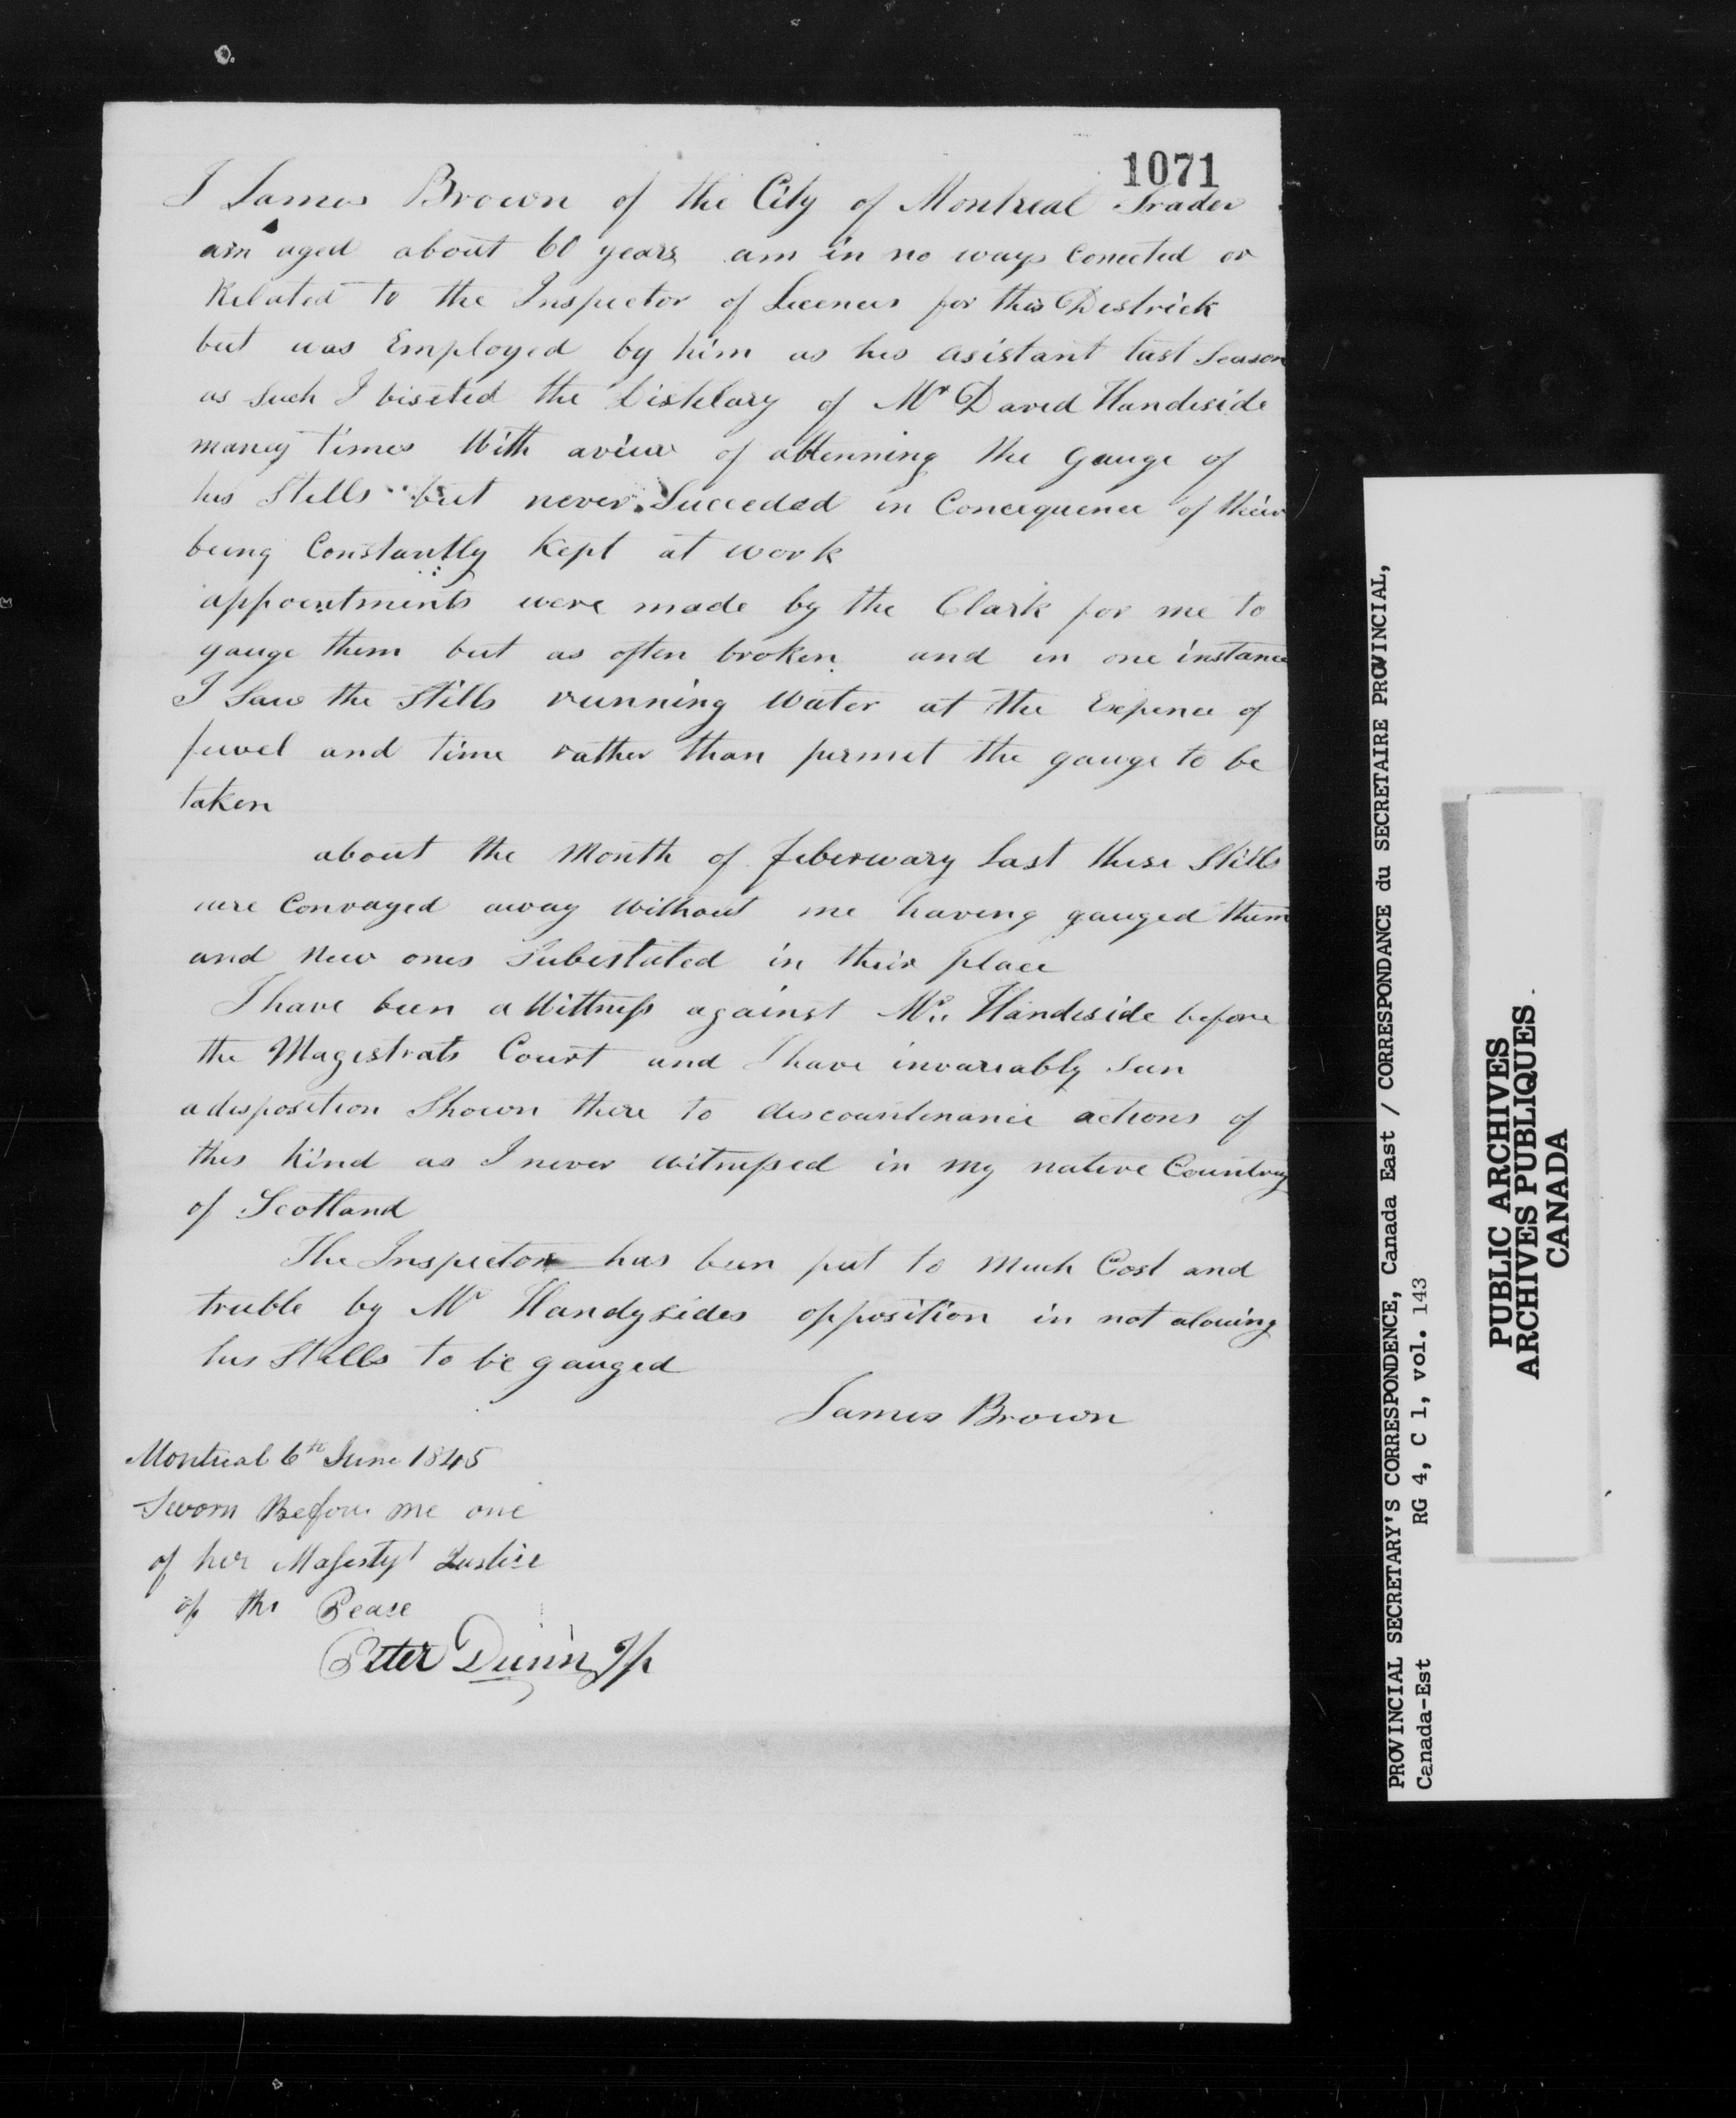 1071
I James Brown of the City of Montreal Trader
am aged about 60 years am in no ways conected or
Related to the Inspector of Licences for this Destrick
but was Employed by him as his asistant last Season
as such I viseted the Distelary of Mr David Handeside
maney times With aview of abtenning the gauge of
his Stells but never Succeeded in Concequence of their
being Constantly Kept at work
appointments were made by the Clark for me to
gauge them but as often broken and in one instance
I Saw the Stills running Water at the Expence of
fuwel and time rather than permet the gauge to be
taken
about the Month of Feberwary last these Stills
were Convayed away Without me having gauged them
and New ones Subestuted in their place
I have been a Wittness against Mr. Handeside before
the Magestrats Court and I have invareably Seen
adesposetion Shown there to descountenance actions of
this Kind as I never witnessed in my native Country
of Scotland
The Inspector has been put to Much Cost and
truble by Mr Handysides opposition in not alowing
his Stells to be gauged
James Brown
Montreal 6th June 1845
Sworn Before me one
of her Majestys Justice
of the Pease
Peter Dunn Jp
PROVINCIAL SECRETARY'S CORRESPONDENCE, Canada East / CORRESPONDANCE du SECRETAIRE PROVINCIAL,
Canada-Est RG 4, C 1, vol. 143
PUBLIC ARCHIVES
ARCHIVES PUBLIQUES
CANADA